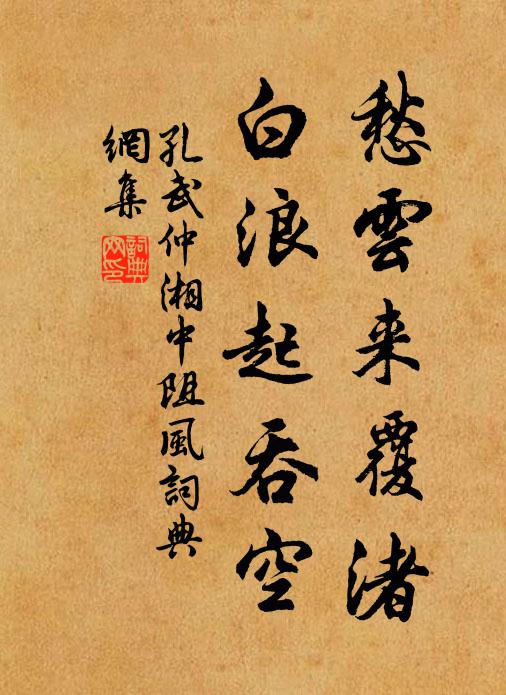 愁雲来覆渚
白浪起吞空
孔武仲湘中阻風詞典
網集
詞典
网印